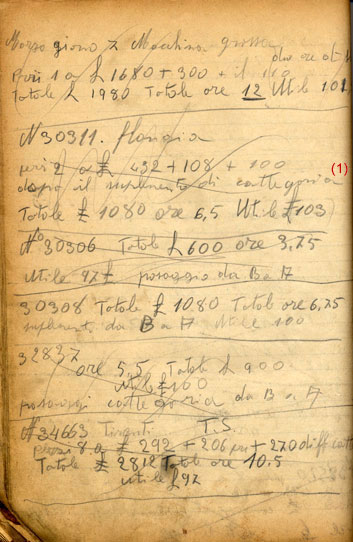 Marzo giorno 7 Macchina grossa
due ore at
Pezzi 1 a £ 1680 + 300 + il 110
Totale £ 1980 Totale ore 12 Utile 101
N 30311. flangia
pezzi 2 a £ 432 + 108 + 100
(1)
dopo il suplemento di cattegoria
Totale £ 1080 ore 6,5 Utile £ 103
N° 30306 Totale £ 600 ore 3,75
Utile 97 £ passaggio da B a A
30308 Totale £ 1080 Totale ore 6,75
suplement, da B a A Utile 100
32837
ore 5,5 Totale £ 900
utile £ 160
passaggi cattegoria da B a A
N° 34663 Tiranti T.S.
pezzi 8 a £ 292 + 206 + 270
Totale £ 2812 Totale ore 10.5
utile £ 97